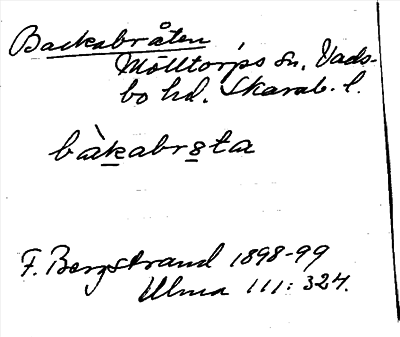 Backabråten
Mölltorps sn. Vads-
bo hd. Skarab. l.
bàkabrsta
F. Bergstrand 1898-99
Ulma 111: 324.